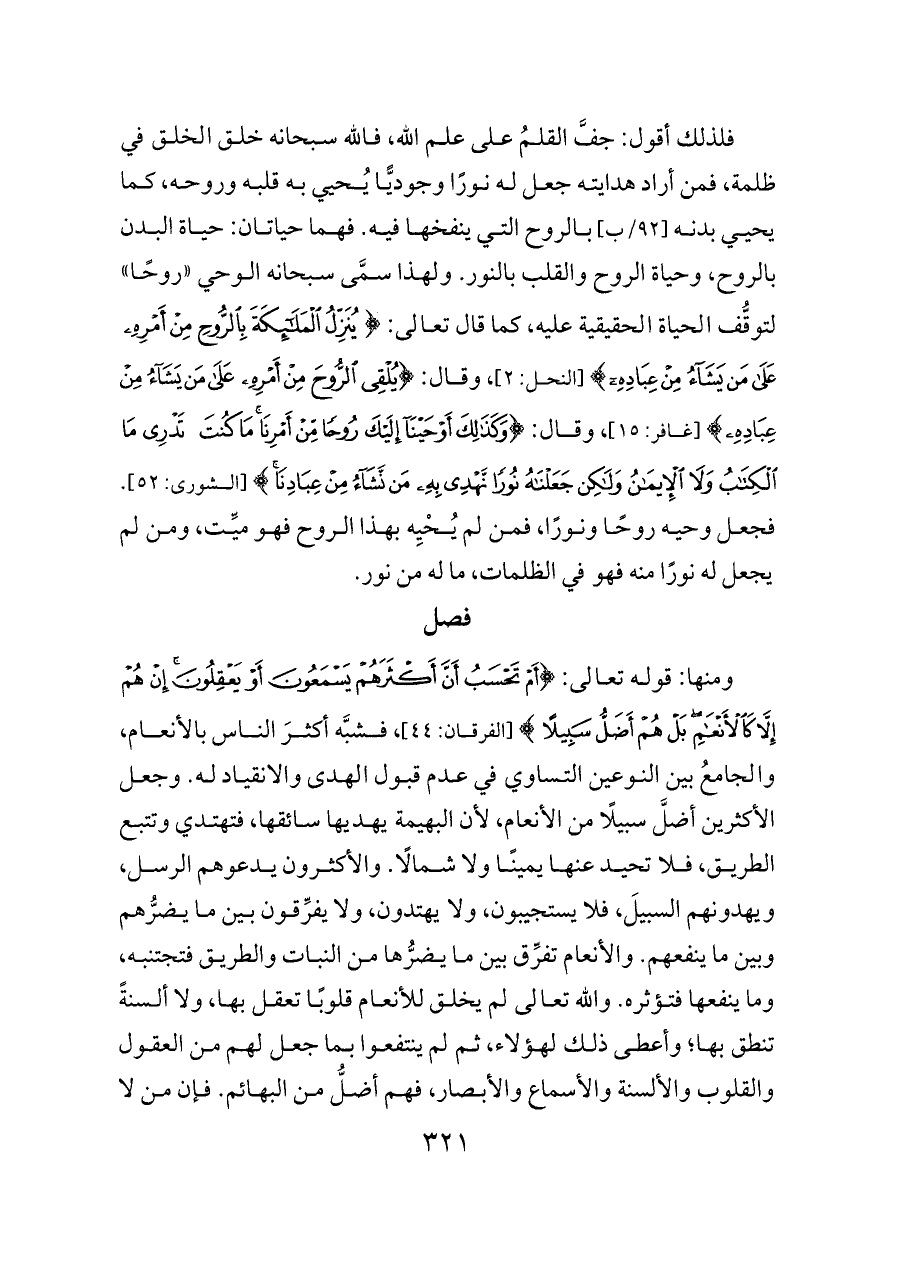 فلذلك أقول: جفَّ القلمُ على علم الله، فالله سبحانه خلق الخلق في
ظلمة، فمن أراد هدايته جعل له نورًا وجوديًّا يُحيي به قلبه وروحه، كما
يحيي بدنه [٩٢/ ب] بالروح التي ينفخها فيه. فهما حياتان: حياة البدن
بالروح، وحياة الروح والقلب بالنور. ولهذا سمَّى سبحانه الوحي «روحًا»
لتوقُّف الحياة الحقيقية عليه، كما قال تعالى: ﴿ يُنَزِّلُ ٱلْمَلَٰٓئِكَةَ بِٱلرُّوحِ مِنْ أَمْرِهِۦ
عَلَىٰ مَن يَشَآءُ مِنْ عِبَادِهِۦٓ ﴾ [النحل: ٢]، وقال: ﴿يُلْقِى ٱلرُّوحَ مِنْ أَمْرِهِۦ عَلَىٰ مَن يَشَآءُ مِنْ
عِبَادِهِۦ ﴾ [غافر: ١٥]، وقال: ﴿وَكَذَٰلِكَ أَوْحَيْنَآ إِلَيْكَ رُوحًا مِّنْ أَمْرِنَا ۚ مَا كُنتَ تَدْرِى مَا
ٱلْكِتَٰبُ وَلَا ٱلْإِيمَٰنُ وَلَٰكِن جَعَلْنَٰهُ نُورًا نَّهْدِى بِهِۦ مَن نَّشَآءُ مِنْ عِبَادِنَا ۚ ﴾ [الشورى: ٥٢].
فجعل وحيه روحًا ونورًا، فمن لم يُحْيِه بهذا الروح فهو ميِّت، ومن لم
يجعل له نورًا منه فهو في الظلمات، ما له من نور.
فصل
ومنها: قوله تعالى: ﴿أَمْ تَحْسَبُ أَنَّ أَكْثَرَهُمْ يَسْمَعُونَ أَوْ يَعْقِلُونَ ۚ إِنْ هُمْ
إِلَّا كَٱلْأَنْعَٰمِ ۖ بَلْ هُمْ أَضَلُّ سَبِيلًا ﴾ [الفرقان: ٤٤]، فشبَّه أكثرَ الناس بالأنعام،
والجامعُ بين النوعين التساوي في عدم قبول الهدى والانقياد له. وجعل
الأكثرين أضلَّ سبيلًا من الأنعام، لأن البهيمة يهديها سائقها، فتهتدي وتتبع
الطريق، فلا تحيد عنها يمينًا ولا شمالًا. والأكثرون يدعوهم الرسل،
ويهدونهم السبيلَ، فلا يستجيبون، ولا يهتدون، ولا يفرِّقون بين ما يضرُّهم
وبين ما ينفعهم. والأنعام تفرِّق بين ما يضرُّها من النبات والطريق فتجتنبه،
وما ينفعها فتؤثره. والله تعالى لم يخلق للأنعام قلوبًا تعقل بها، ولا ألسنةً
تنطق بها؛ وأعطى ذلك لهؤلاء، ثم لم ينتفعوا بما جعل لهم من العقول
والقلوب والألسنة والأسماع والأبصار، فهم أضلُّ من البهائم. فإن من لا
٣٢١